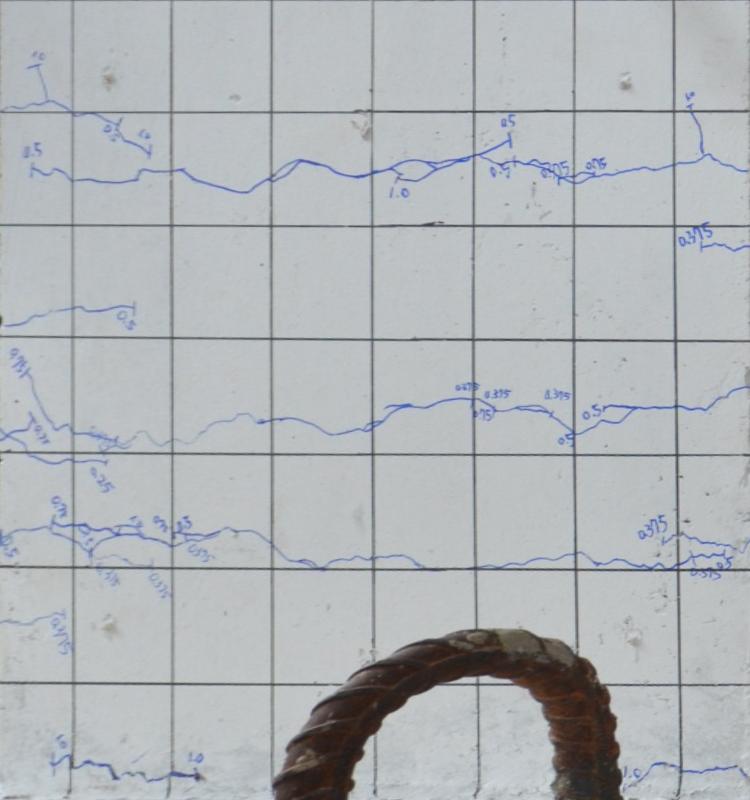 1.0
0.5
1.0
0.5
0.5
1.0
0.5
0.375
0.75
0.375
0.5
0.75
0.375
0.375
0.375
0.75
0.5
0.5
0.25
0.5
0.375
0.375
0.375
0.375
0.375
0.5
0.375
1.0
1.0
1.0